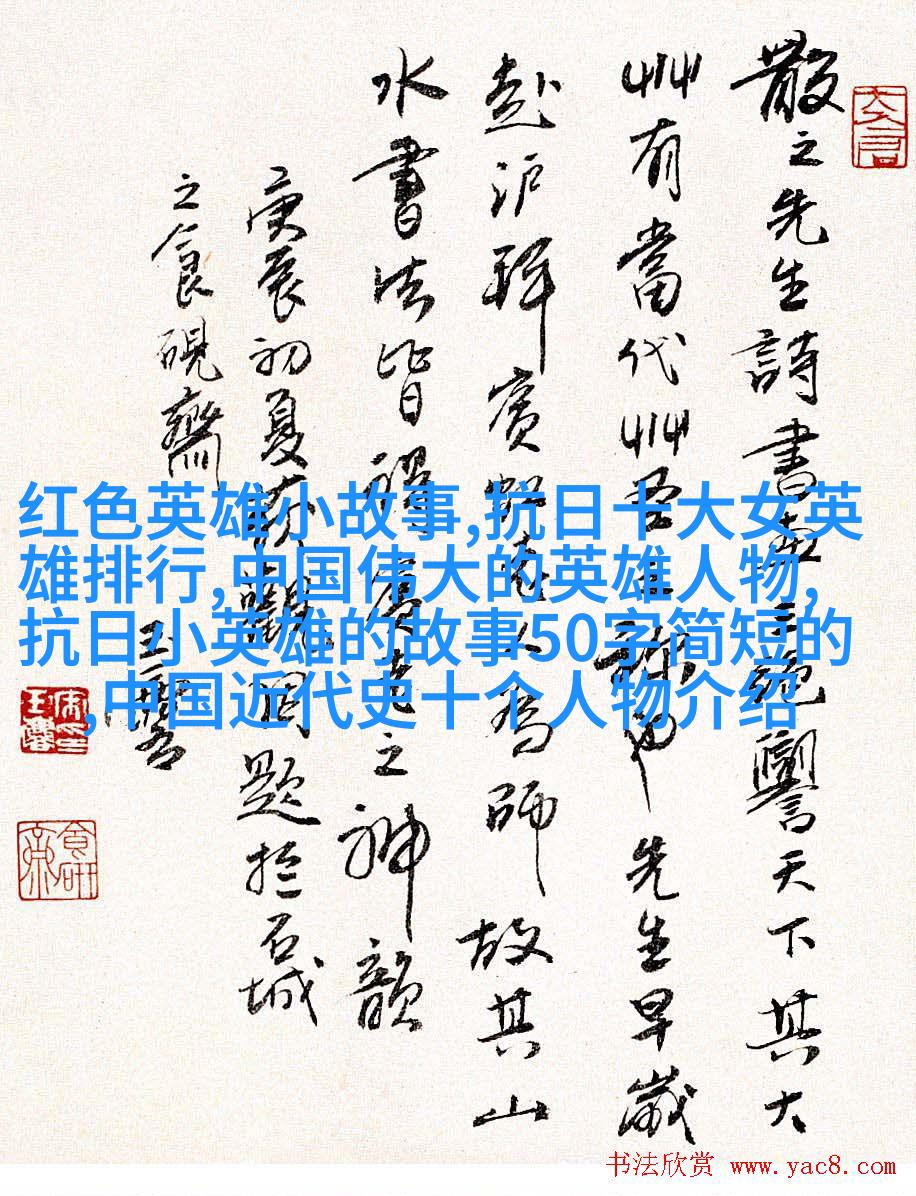 红色英雄小故事,抗日十大女英
雄排行,中国伟大的英雄人物,
抗日小英雄的故事50字简短的
,中国近代史十个人物介绍
散之先生詩書畫三絕譽天下其大
艸有當代艸先生早歲
赴沪拜賓虹老人為師故其山
水書法皆得賓老之神韻
庚辰初夏觀因題於石城
之食硯齋
书法欣赏 www.yac8.com